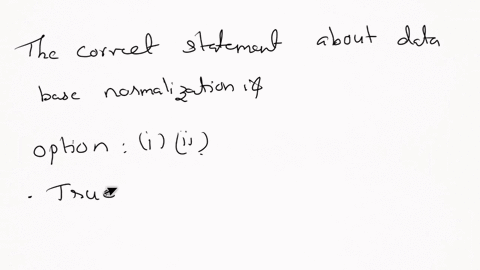 The correct statement about data
base normalization is
option : (i) (ii)
. True